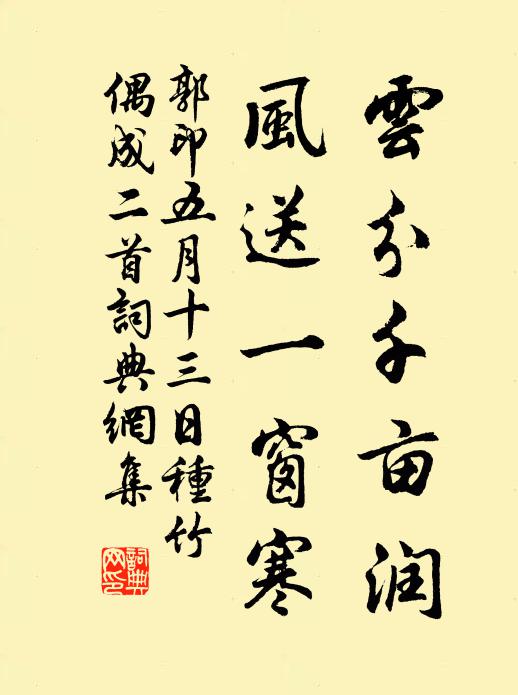 雲分千亩润
風送一窗寒
郭印五月十三日種竹
偶成二首詞典網集
詞典网印